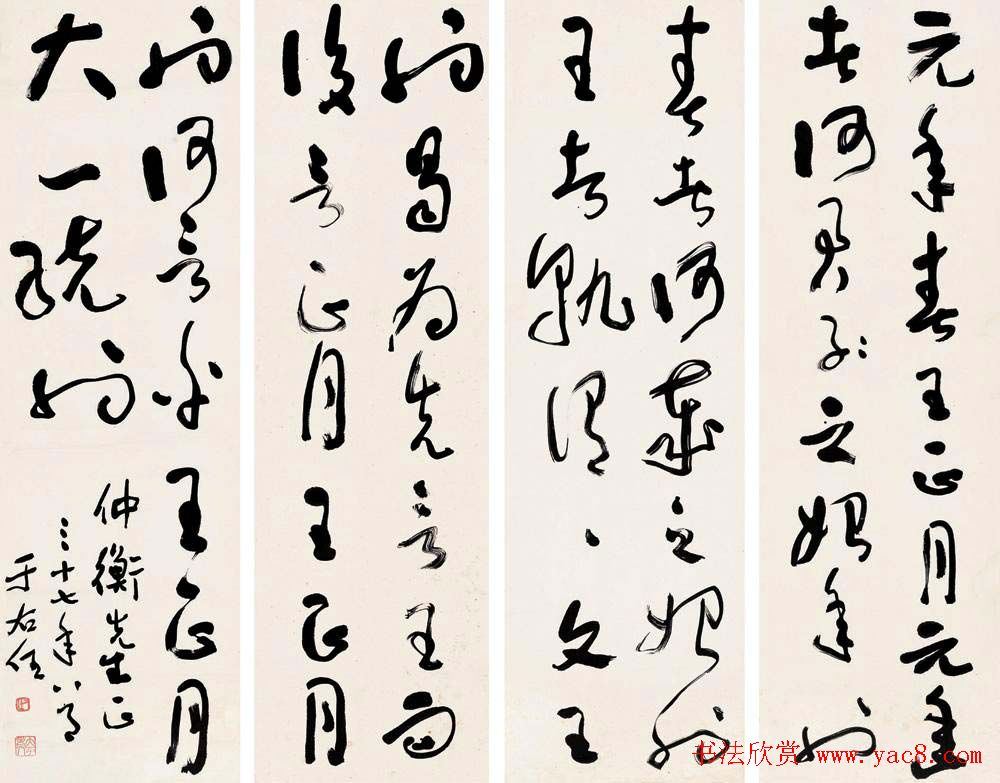 元年春王正月元年
者何君子之始年也
春者何歲之始也
王者孰謂謂文王
也曷為先言王而
後言正月王正月
也何言乎王正月
大一統也
仲衡先生正
三十七年八月
于右任
书法欣赏 www.yac8.com